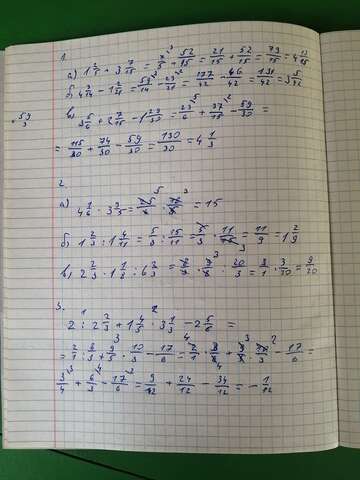 1.
а) 1 2/5 + 3 7/15 = 7/5 + 52/15 = 21/15 + 52/15 = 73/15 = 4 13/15
б) 4 3/14 - 1 2/21 = 59/14 - 23/21 = 177/42 - 46/42 = 131/42 = 3 5/42
59/3
в) 3 5/6 + 2 7/15 - 1 29/30 = 23/6 + 37/15 - 59/30 =
= 115/30 + 74/30 - 59/30 = 130/30 = 4 1/3
2.
а) 4 1/6 · 3 3/5 = 25/6 · 18/5 = 15
б) 1 2/3 : 1 4/11 = 5/3 : 15/11 = 5/3 · 11/15 = 11/9 = 1 2/9
в) 2 2/3 · 1 1/8 : 6 2/3 = 8/3 · 9/8 : 20/3 = 3/1 · 3/20 = 9/20
3.
2 : 2 2/3 + 1 4/5 · 3 1/3 - 2 5/6 =
= 2/1 : 8/3 + 9/5 · 10/3 - 17/6 = 2/1 · 3/8 + 9/5 · 10/3 - 17/6 =
3/4 + 6/3 - 17/6 = 9/12 + 24/12 - 34/12 = - 1/12